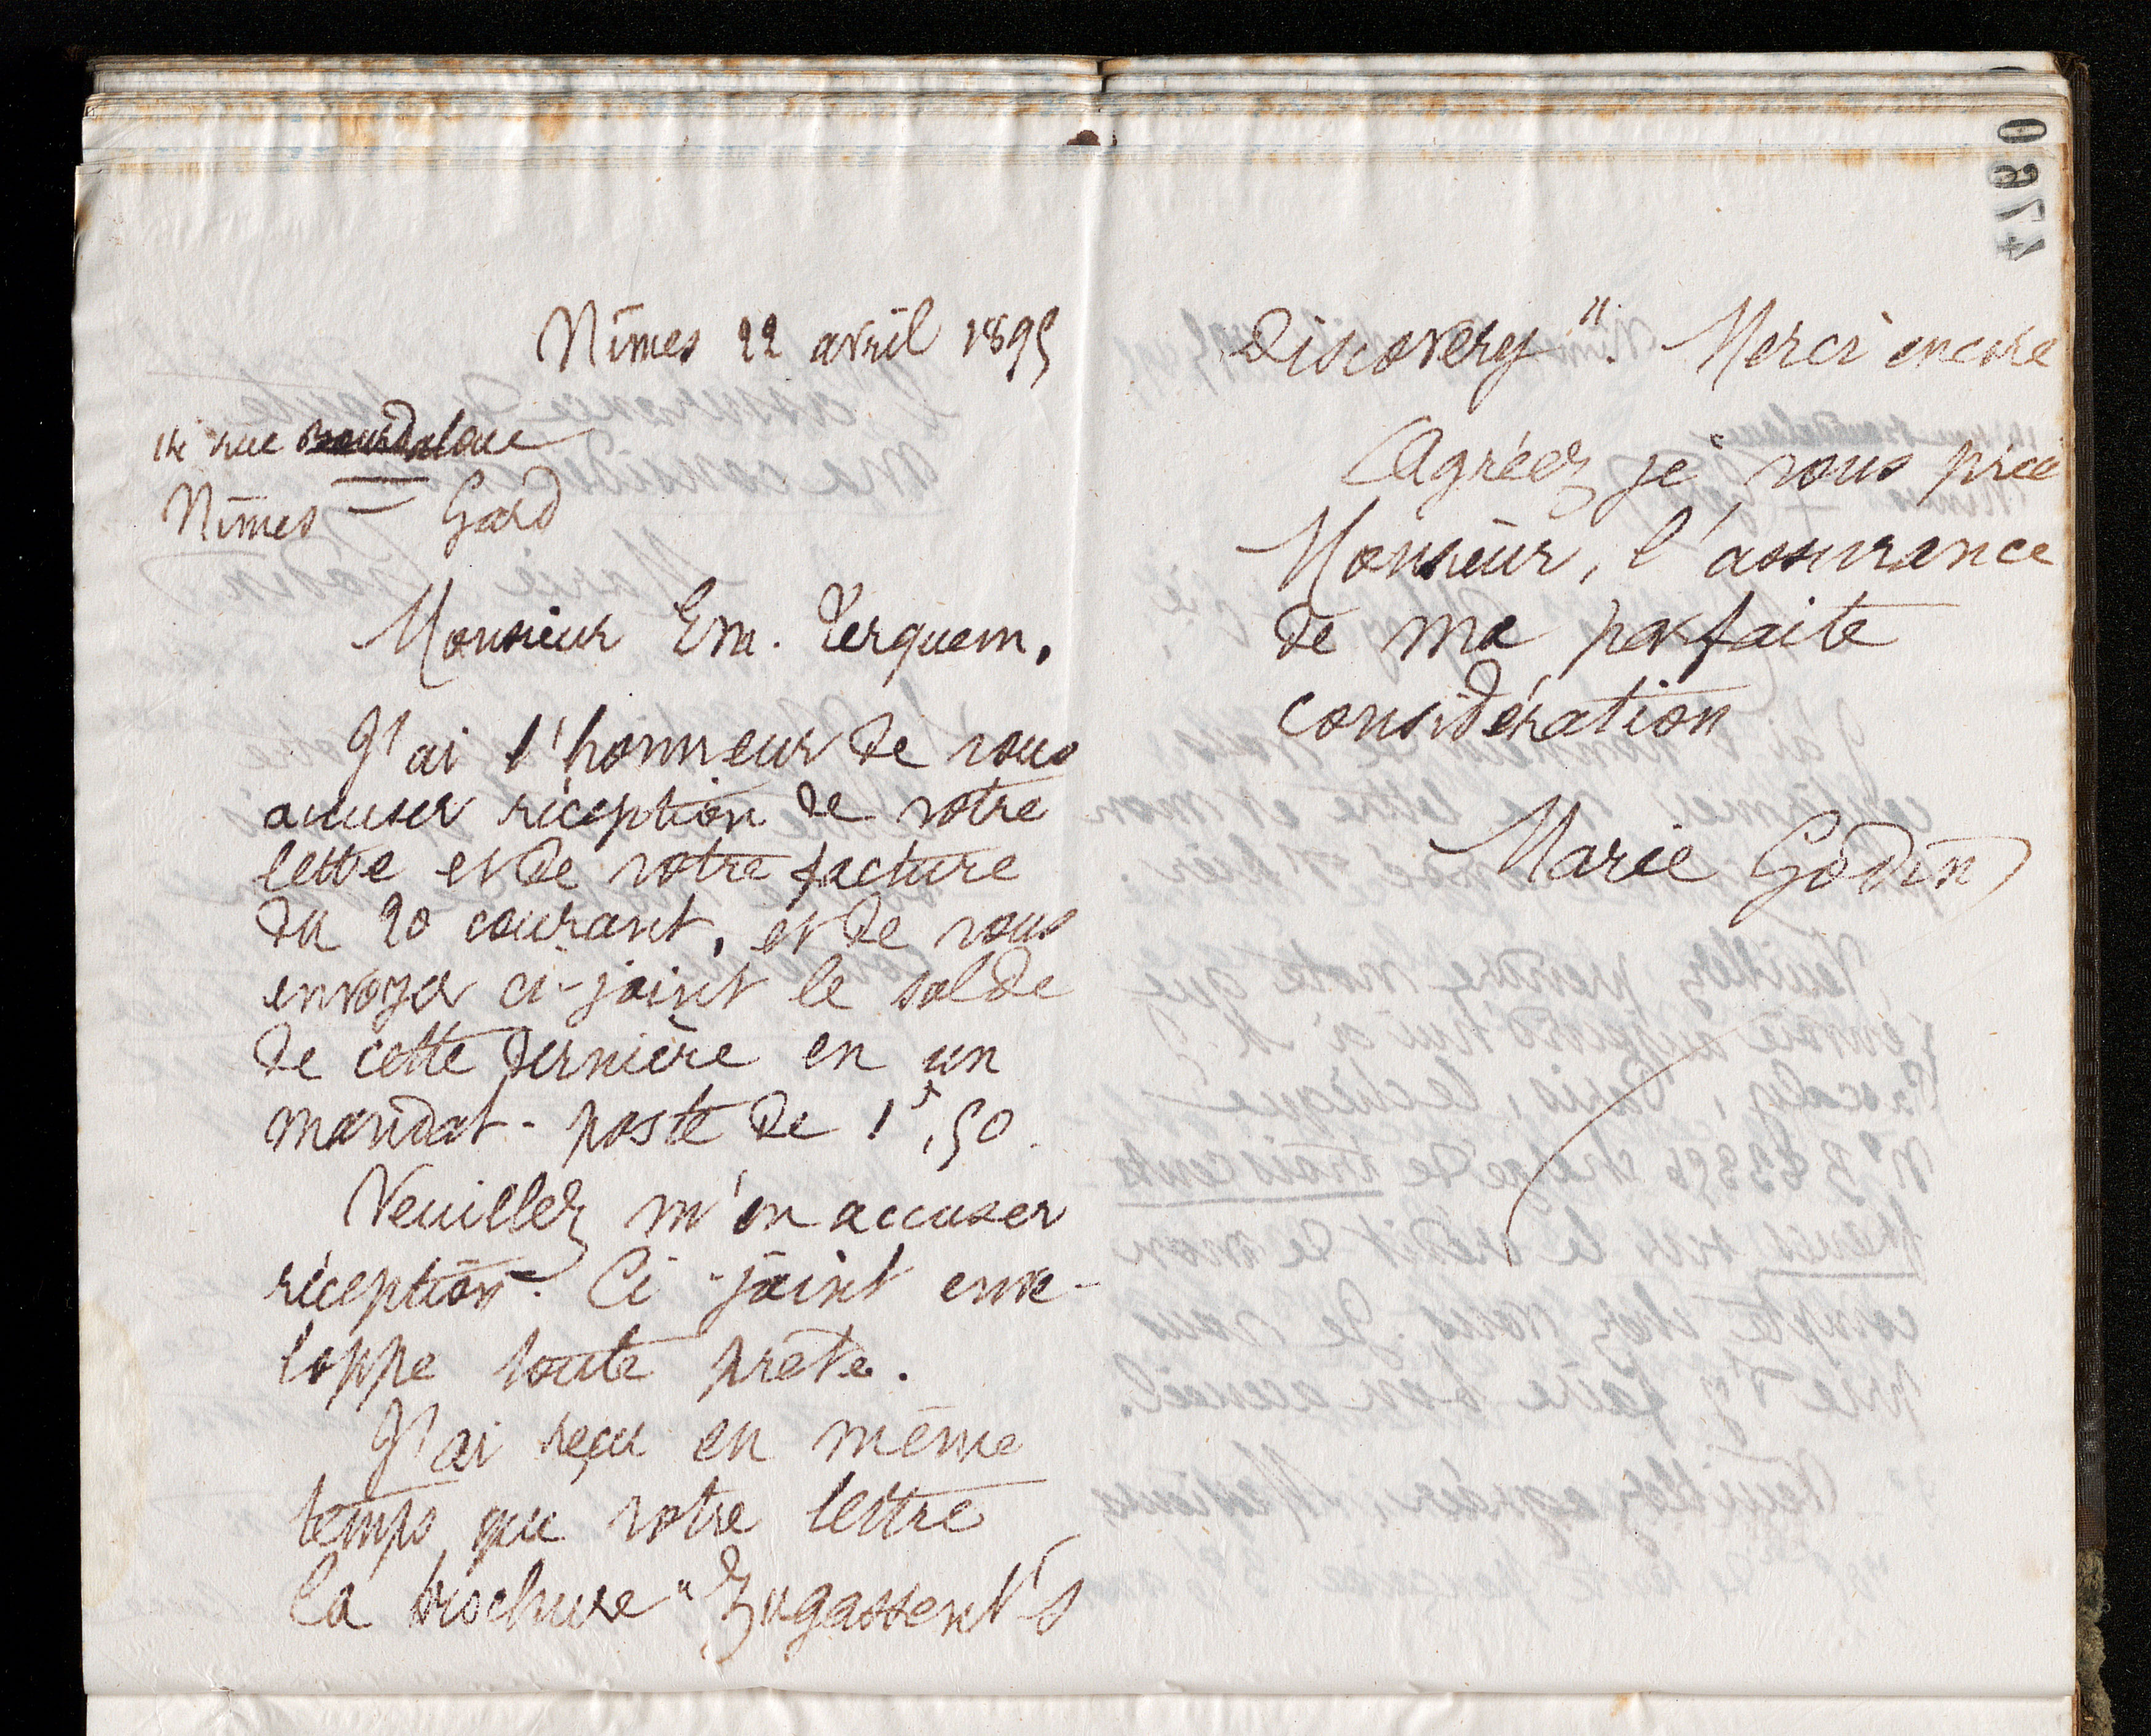 Nîmes 22 avril 1895
14 rue Bourdaloue
Nîmes - Gard
Monsieur Em. Terquem,
J'ai l'honneur de vous
accuser réception de votre
lettre et de votre facture
du 20 courant, et de vous
envoyer ci-joint le solde
de cette dernière en un
mandat-poste de 1f,50.
Veuillez m'en accuser
réception. Ci-joint enve-
loppe toute prête.
J'ai reçu en même
temps que votre lettre
la brochure "Zugassent's
Discovery". Merci encore
Agréez je vous prie
Monsieur, l'assurance
de ma parfaite
considération
Marie Godin